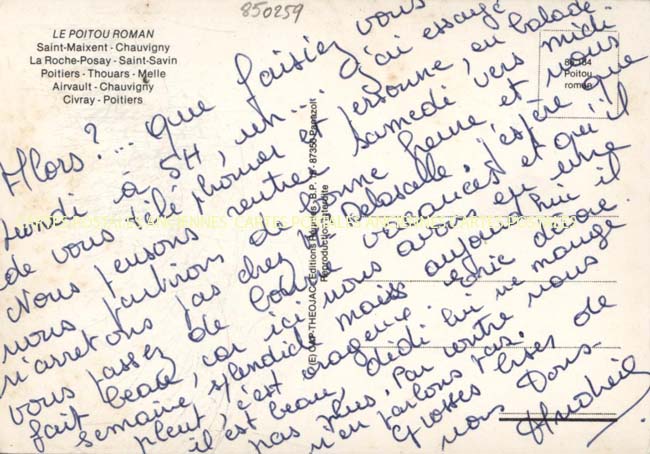 850259
LE POITOU ROMAN
Saint-Maixent - Chauvigny
La Roche-Posay - Saint-Savin
Poitiers - Thouars - Melle
Airvault - Chauvigny
Civray - Poitiers
86 184
Poitou
roman
(E) IMP-THEOJAC Editions B.P. 18 - 87350 Panazol
Reproduction interdite
CARTES POSTALES ANCIENNES CARTES POSTALES ANCIENNES CARTES POSTALES
Alors ?.... que faisiez vous
lundi à 5H, uh.... J'ai essayé
de vous téléphoner et personne, en balade.
Nous pensons rentrer samedi vers midi
nous partirons de bonne heure, et nous
n'arretons pas chez Delascalle. J'espère que
vous passez de bonne vacances et qu'il
fait beau, car ici nous avons eu une
semaine splendide mais aujourd'hui il
pleut, c'est orageux. Eric dévore
il est beau, dédi lui ne mange
pas plus. Par contre nous
n'en parlons pas.
Grosses bises de
nous Tous.